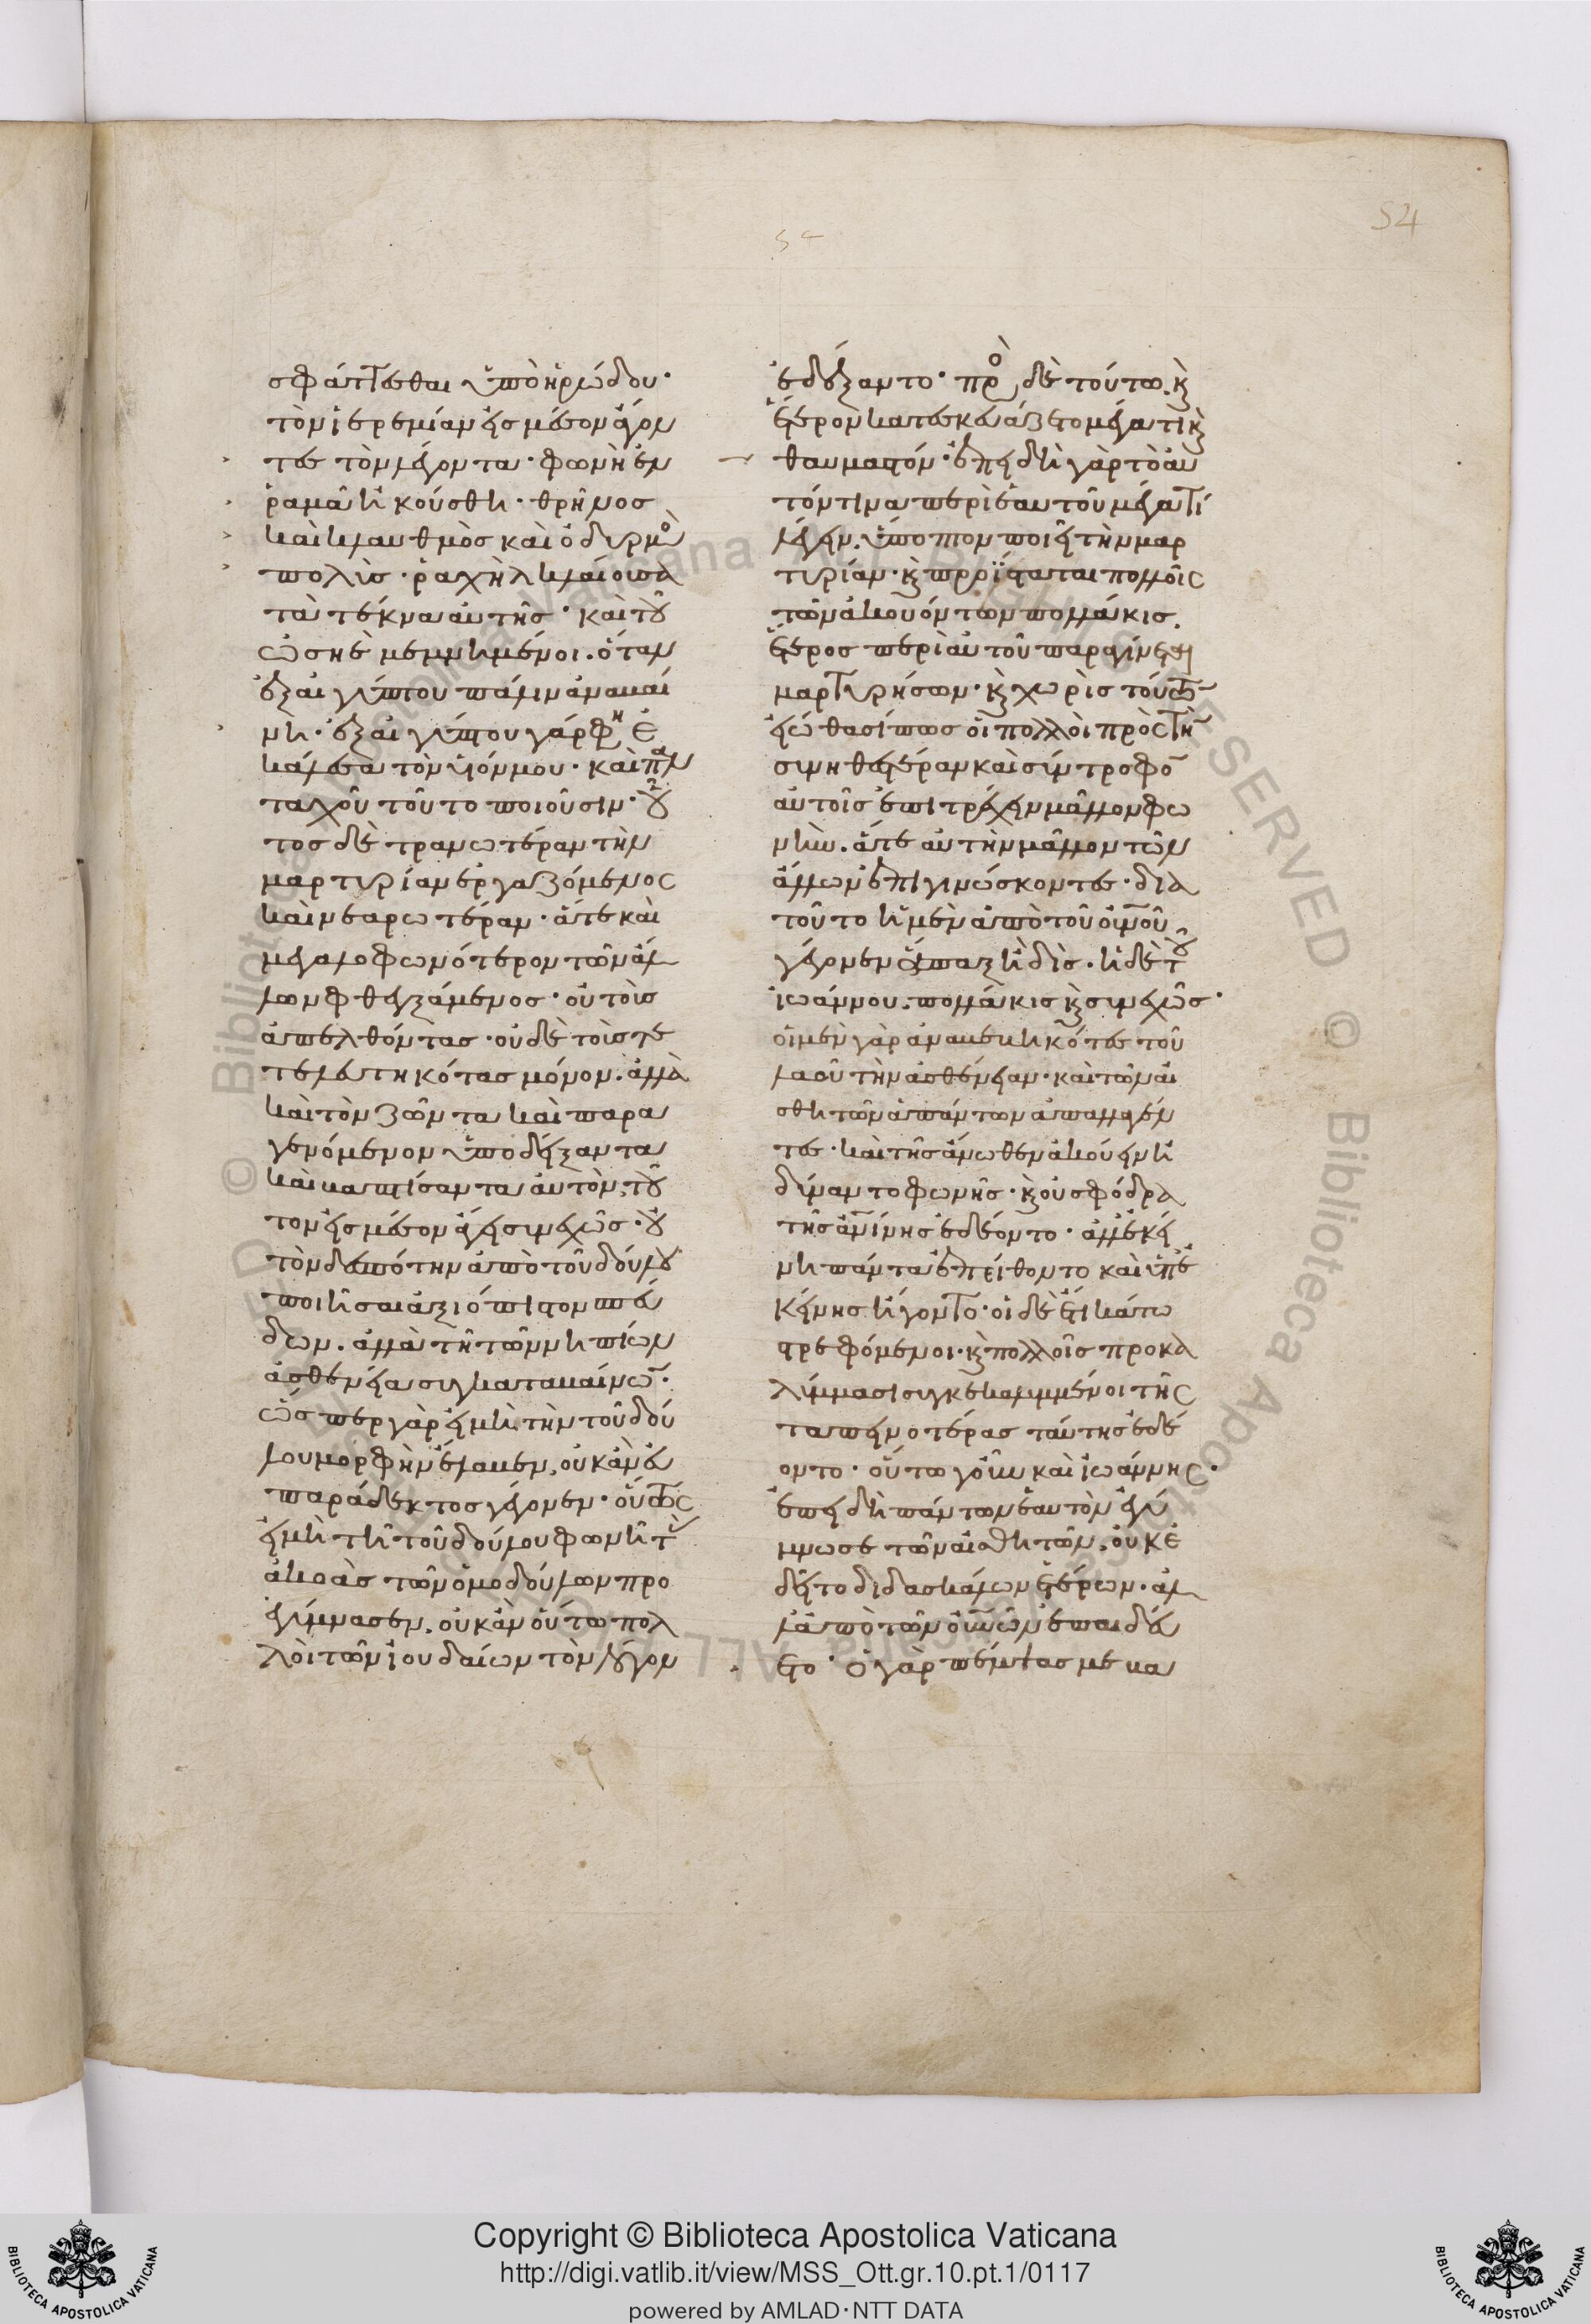 54
σφάττεσθαι ὑπὸ ἡρώδου·
τὸν ἱερεμίαν εἰς μέσον ἄγον
τες τὸν λέγοντα· φωνὴ ἐν
ῥαμᾶ ἠκούσθη· θρῆνος
καὶ κλαυθμὸς καὶ ὀδυρμὸ
πολὺς· ῥαχὴλ κλαίουσα
τὰ τέκνα αὐτῆς· καὶ τοῦ
ὠσηὲ μεμνημένοι. ὅταν
ἐξ αἰγύπτου πάλιν ἀνακαί
νη· ἐξ αἰγύπτου γάρ φη ἐ
κάλεσα τὸν υἱόν μου· καὶ παν
ταχοῦ τοῦτο ποιοῦσιν· οὗ
τος δὲ τρανωτέραν τὴν
μαρτυρίαν ἐργαζόμενος
καὶ νεαρωτέραν· ἅτε καὶ
μεγαλοφωνότερον τῶν ἄλ
λων φθεγξάμενος· οὐ τοὺς
ἀπελθόντας· οὐδὲ τοὺς τε
τελευτηκότας μόνον. ἀλλὰ
καὶ τὸν ζῶντα καὶ παρα
γενόμενον ὑποδείξαντα
καὶ βαπτίσαντα αὐτὸν, τοῦ
τον εἰς μέσον ἄγει συνεχῶς· οὐ
τὸν δεσπότην ἀπὸ τοῦ δούλου
ποιῆσαι ἀξιόπιστον σπεύ
δων. ἀλλὰ τῆ τῶν νηπίων
ἀσθενεία συγκαταβαίνων·
ὥσπερ γὰρ εἰ μὴ τὴν τοῦ δού
λου μορφὴν ἔλαβεν, οὐκ ἂν εὐ
παράδεκτος γέγονεν· οὕτως
εἰ μὴ τῆ τοῦ δούλου φωνῆ τὰς
ἀκοὰς τῶν ὁμοδούλων προ
εγύμνασεν, οὐκ ἂν οὕτω πολ
λοὶ τῶν ἰουδαίων τὸν λόγον
ἐδέξαντο· πρὸ δὲ τούτω, καὶ
ἕτερον κατεσκευάζετο μέγα τι καὶ
θαυμαστόν· ἐπειδὴ γὰρ τὸ αὐ
τόν τινα περὶ ἑαυτοῦ μέγα τι
λέγειν, ὕποπτον ποιεῖ τὴν μαρ
τυρίαν· καὶ προσίσταται πολλοῖς
τῶν ἀκουόντων πολλάκις,
ἕτερος περὶ αὐτοῦ παραγίνεται
μαρτυρήσων· καὶ χωρὶς τούτων
εἰώθασί πως οἱ πολλοὶ πρὸς τὴν
συνηθεστέραν καὶ σύντροφον
αὐτοῖς ἐπιτρέχειν μᾶλλον φω
νήν. ἅτε αὐτὴν μᾶλλον τῶν
ἄλλων ἐπιγινώσκοντες· διὰ
τοῦτο ἡ μὲν ἀπὸ τοῦ οὐνοῦ
γέγονεν ἅπαξ ἢ δὶς· ἡ δὲ τοῦ
ἰωάννου, πολλάκις καὶ συνεχῶς·
οἱ μὲν γὰρ ἀναβεβηκότες τοῦ
λαοῦ τὴν ἀσθένειαν· καὶ τῶν αἰ
σθητῶν ἁπάντων ἀπαλλαγέν
τες· καὶ τῆς ἄνωθεν ἀκούειν ἠ
δύναντο φωνῆς· καὶ οὐ σφόδρα
τῆς ἀνίνης ἐδέοντο· ἀλλ' ἐκεί
νη πάντα ἐπείθοντο καὶ ὑπ' ἐ
κείνης ἤγοντο· οἱ δὲ ἔτι κάτω
στρεφόμενοι· καὶ πολλοῖς προκα
λύμμασι συγκεκαλυμμένοι τῆς
ταπεινοτέρας ταύτης ἐδέ
οντο· οὕτω γοῦν καὶ ἰωάννης·
ἐπειδὴ πάντων ἑαυτὸν ἐγύ
μνωσε τῶν αἰσθητῶν, οὐκ ἐ
δεῖτο διδασκάλων ἑτέρων· ἀλ
λ' ἀπὸ τῶν οὐνῶν ἐπαιδεύ
ετο· ὁ γὰρ πέμψας με βα
Copyright © Biblioteca Apostolica Vaticana
http://digi.vatlib.it/view/MSS_Ott.gr.10.pt.1/0117
powered by AMLAD·NTT DATA